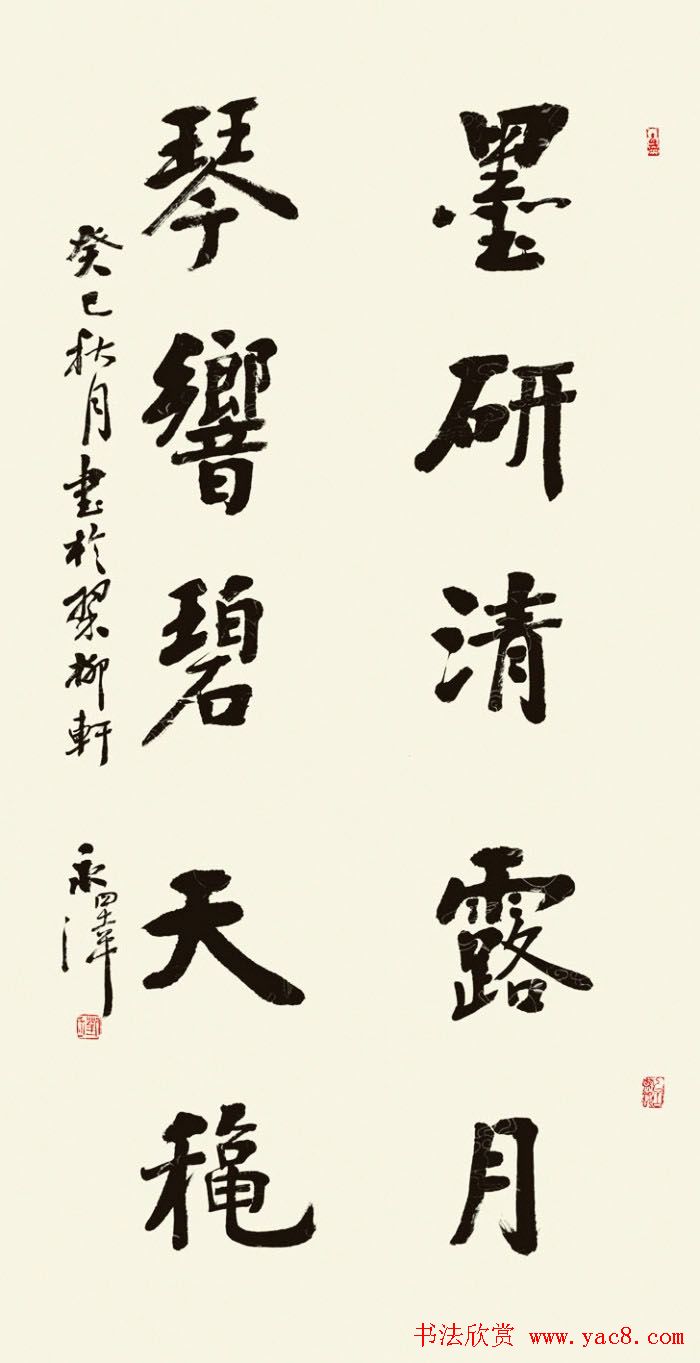 墨研清露月
琴響碧天𪚰
癸巳秋月書於翠柳軒
永澤
书法欣赏 www.yac8.com